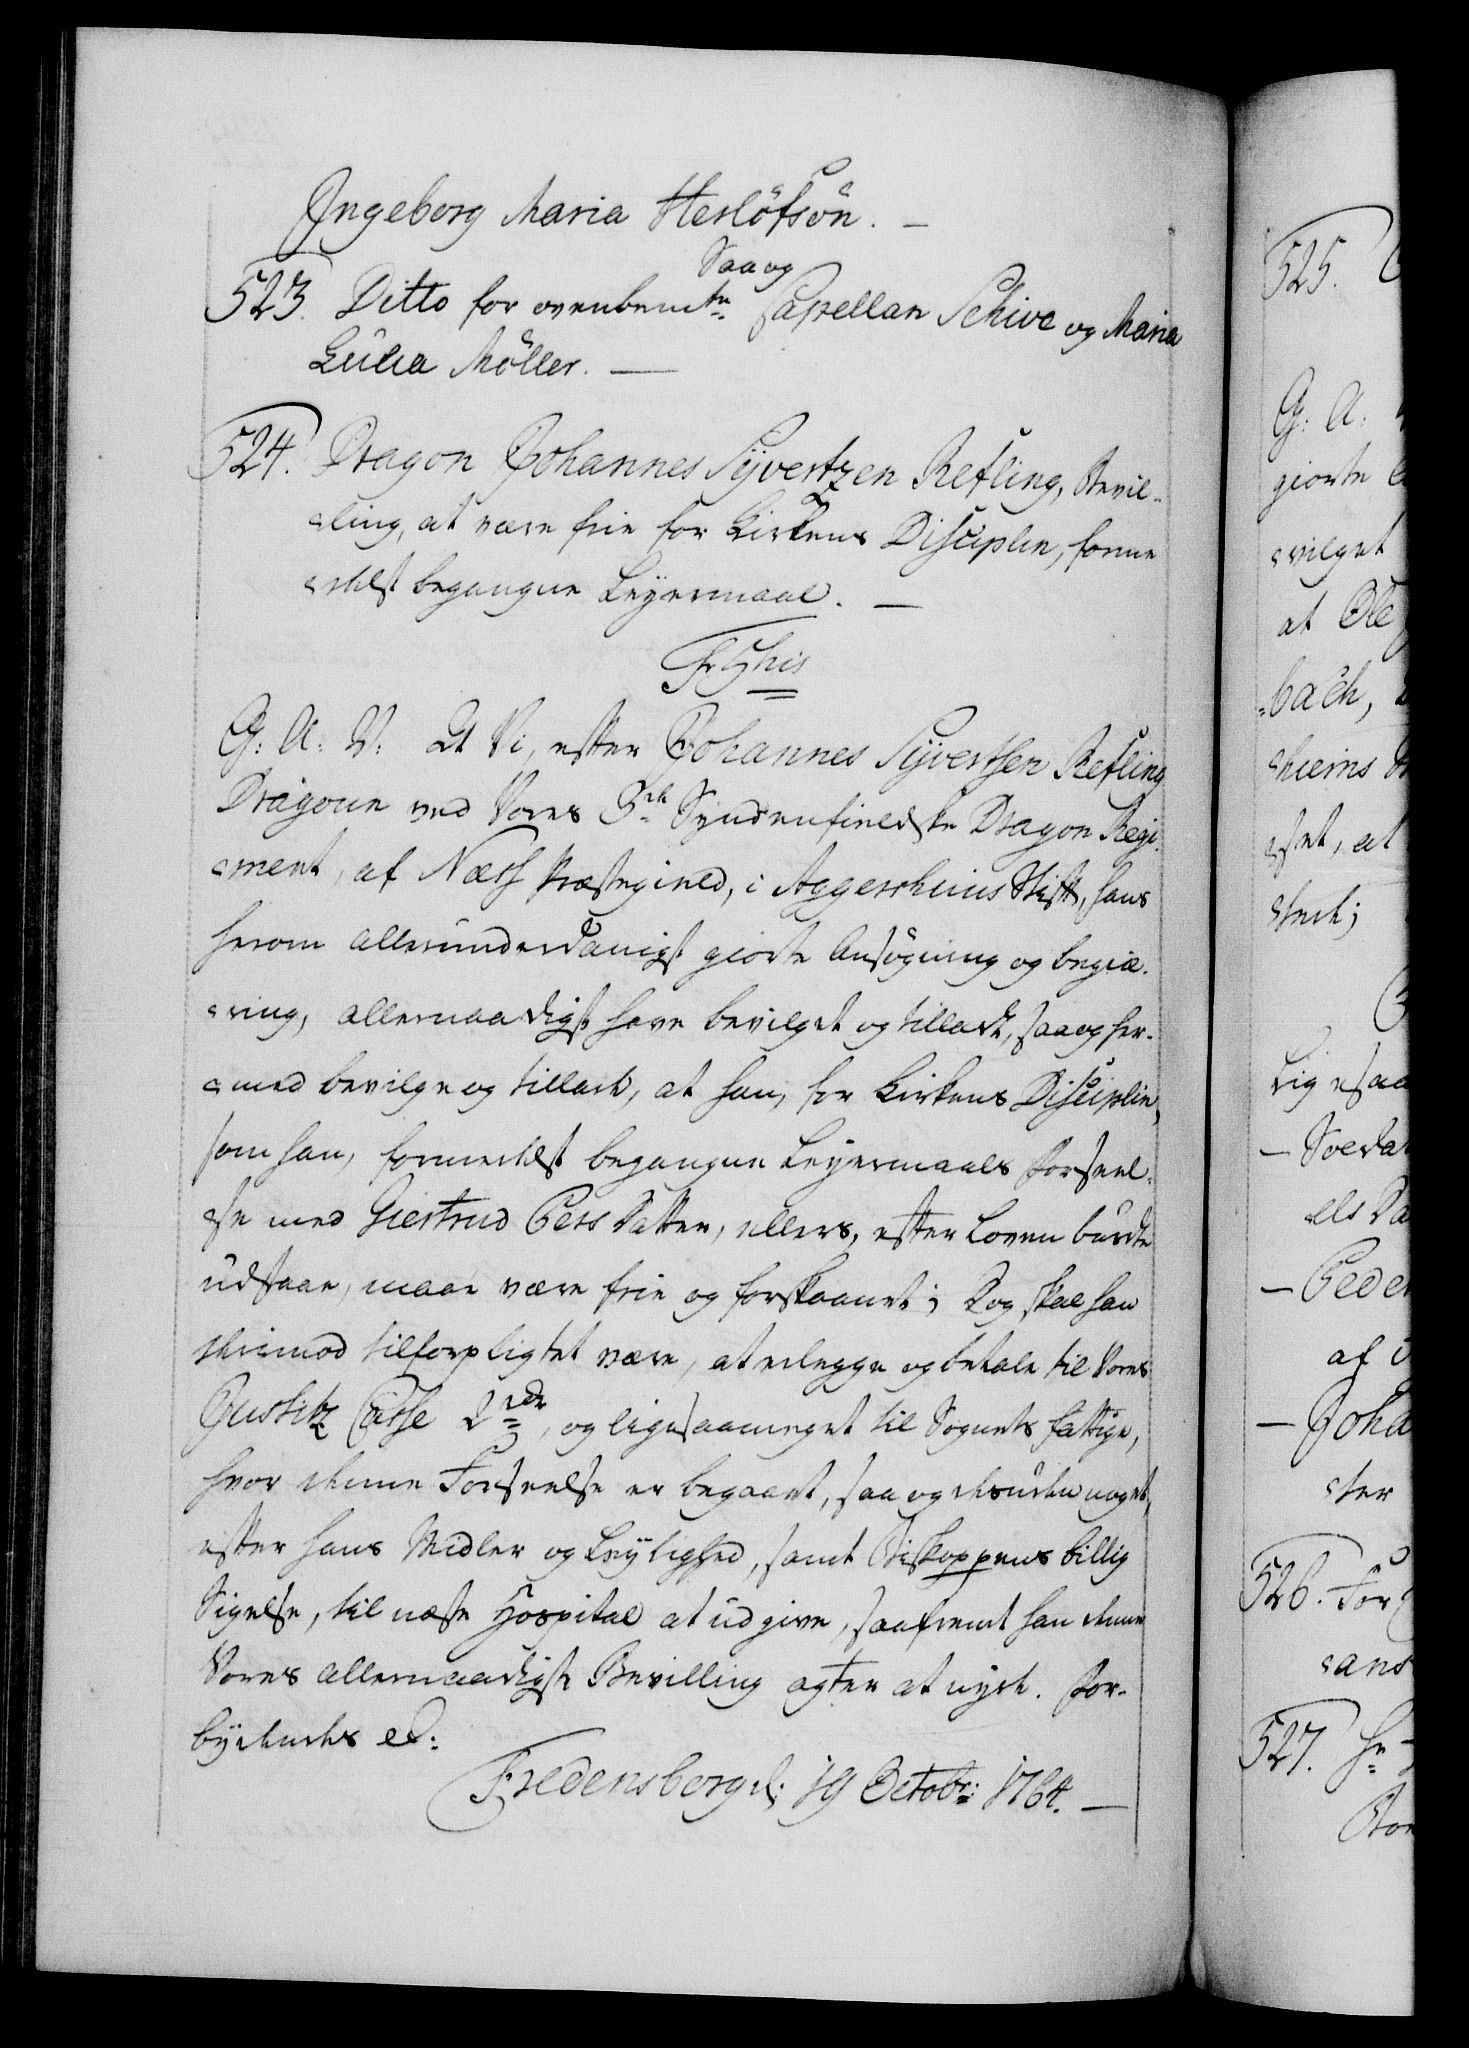 Ingeborg Maria Herlöfsön. —
Saa og
523. Ditto for ovenbemte Capellan Schive og Maria
Lucia Möller. —
524. Dragon Johannes Syvertzen Refling, Bevil-
ling, at være frie for Kirkens Disciplin, forme
delst begangne Leyermaal. —
Fr 5this
G: A: V: At Vi, efter Johannes Syvertsen Refling
Dragoun ved Vores 3de Syndenfieldske Dragon Regi-
ment, af Næss Præstegield, i Aggershuus Stift, hans
herom allerunderdanigst giorte Ansøgning og begiæ-
ring, allernaadigst have bevilget og tilladt, saa og her-
med bevilge og tillade, at han, for Kirkens Disciplin,
som han, formedelst begangne Leyermaals Forseel-
se med Giertrud Pers Datter, ellers, efter Loven burde
udstaae, maae være frie og forskaanet; Dog skal han
derimod tilforpligtet være, at erlegge og betale til Vores
Justitz Casse 2 rdr, og ligesaameget til Sognets fattige,
hvor denne Forseelse er begaaet, saa og desuden noget,
efter hans Midler og Leylighed, samt Biskoppens billig
Sigelse, til næste Hospital at udgive, saafremt han denne
Vores allernaadigste Bevilling agter at nyde. For-
bydendes &c:
Fredensborg d: 19 Octobr: 1764. —
525.
G: A:
giorte
vilget
at Ole
bach,
hiems
stet, at
sted;
Ligesaa
- Soeda
els Da
- Peder
af
- Joha
ster
526. For
ans
527. Hr